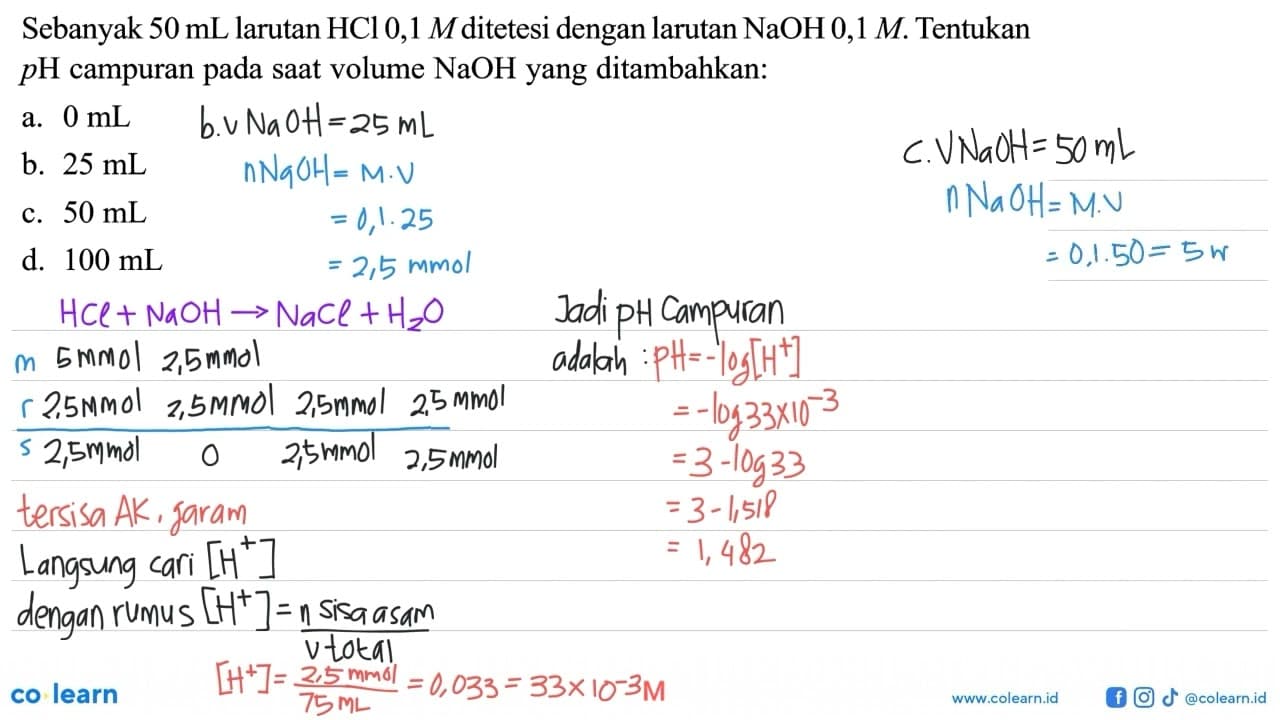 Sebanyak 50 mL larutan HCl 0,1 M ditetesi dengan larutan NaOH 0,1 M. Tentukan
pH campuran pada saat volume NaOH yang ditambahkan:
a. 0 mL
b. 25 mL
c. 50 mL
d. 100 mL
b. V NaOH = 25 mL
nNaOH = M.V
= 0,1.25
= 2,5 mmol
HCl + NaOH → NaCl + H₂O
m 5 mmol 2,5 mmol
r 2,5 mmol 2,5 mmol 2,5 mmol 2,5 mmol
s 2,5 mmol 0 2,5 mmol 2,5 mmol
tersisa AK, garam
Langsung cari [H⁺]
dengan rumus [H⁺] = n sisa asam
V total
[H⁺] = 2,5 mmol / 75 mL = 0,033 = 33×10⁻³ M
Jadi pH Campuran
adalah : pH = -log[H⁺]
= -log 33×10⁻³
= 3 - log 33
= 3 - 1,518
= 1,482
c. V NaOH = 50 mL
n NaOH = M.V
= 0,1.50 = 5
co learn
www.colearn.id
@colearn.id